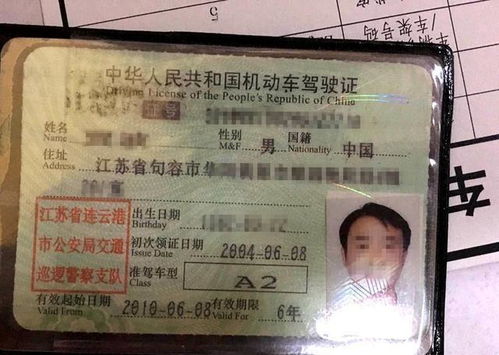 5
/车架号码
中华人民共和国机动车驾驶证
Driving License of the People's Republic of China
证号
姓名
Name
性别 男 国籍 中国
M&F Nationality
住址 江苏省句容市
Address
江苏省连云港
市公安局交通
巡逻警察支队
出生日期
Birthday
初次领证日期 2004-06-08
Issue Date
准驾车型 A2
Class
有效起始日期 2010-06-08 有效期限 6年
Valid From Valid For
车